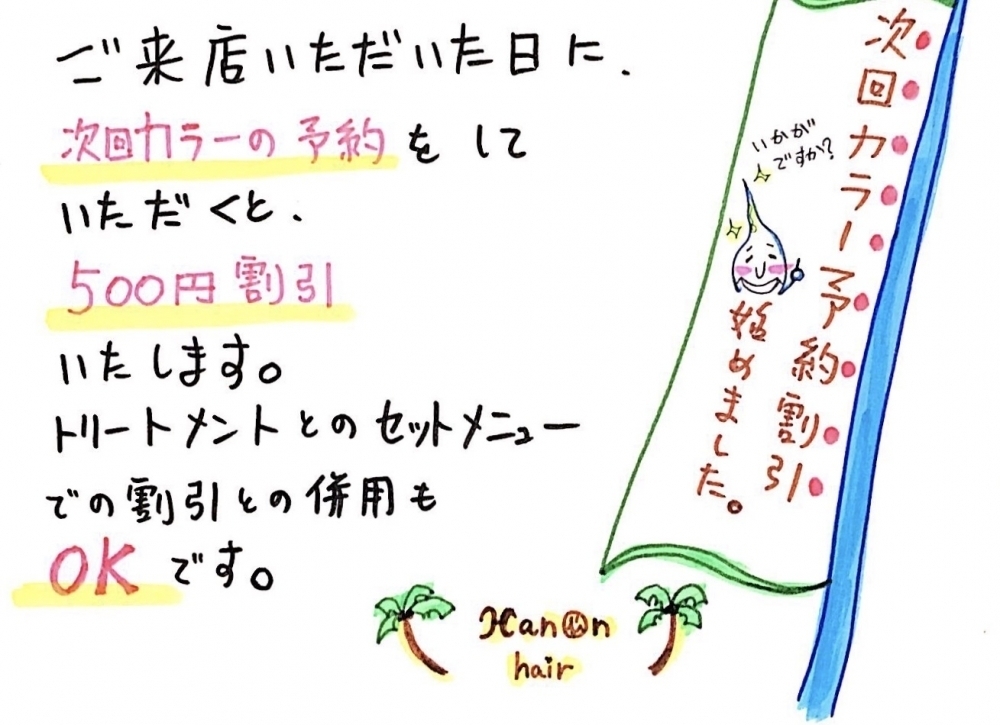 ご来店いただいた日に、
次回カラーの予約をして
いただくと、
500円割引
いたします。
トリートメントとのセットメニュー
での割引との併用も
OKです。
次回カラー予約割引
始めました。
いかが
ですか?
Hanon
hair